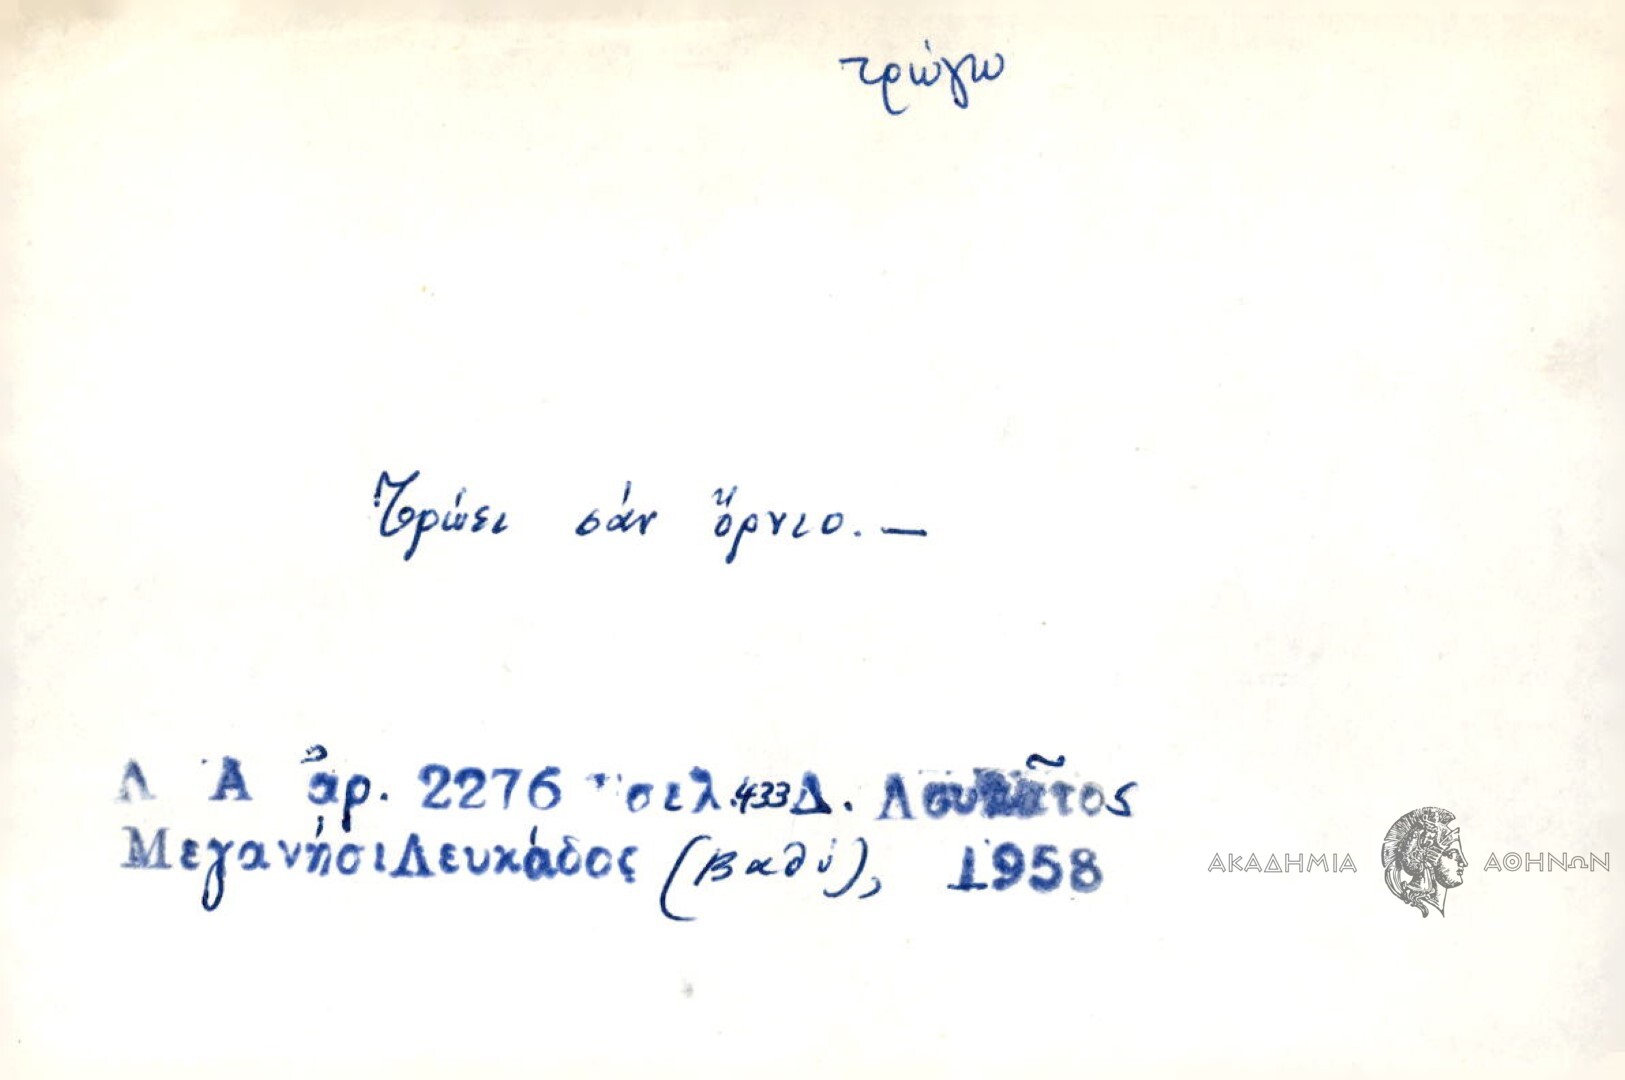 τρώγω
Τρώει σάν ὄρνιο. —
Λ Α ἀρ. 2276 σελ. 433 Δ. Λουκᾶτος
Μεγανήσι Λευκάδος (Βαθύ), 1958
ΑΚΑΔΗΜΙΑ ΑΘΗΝΩΝ